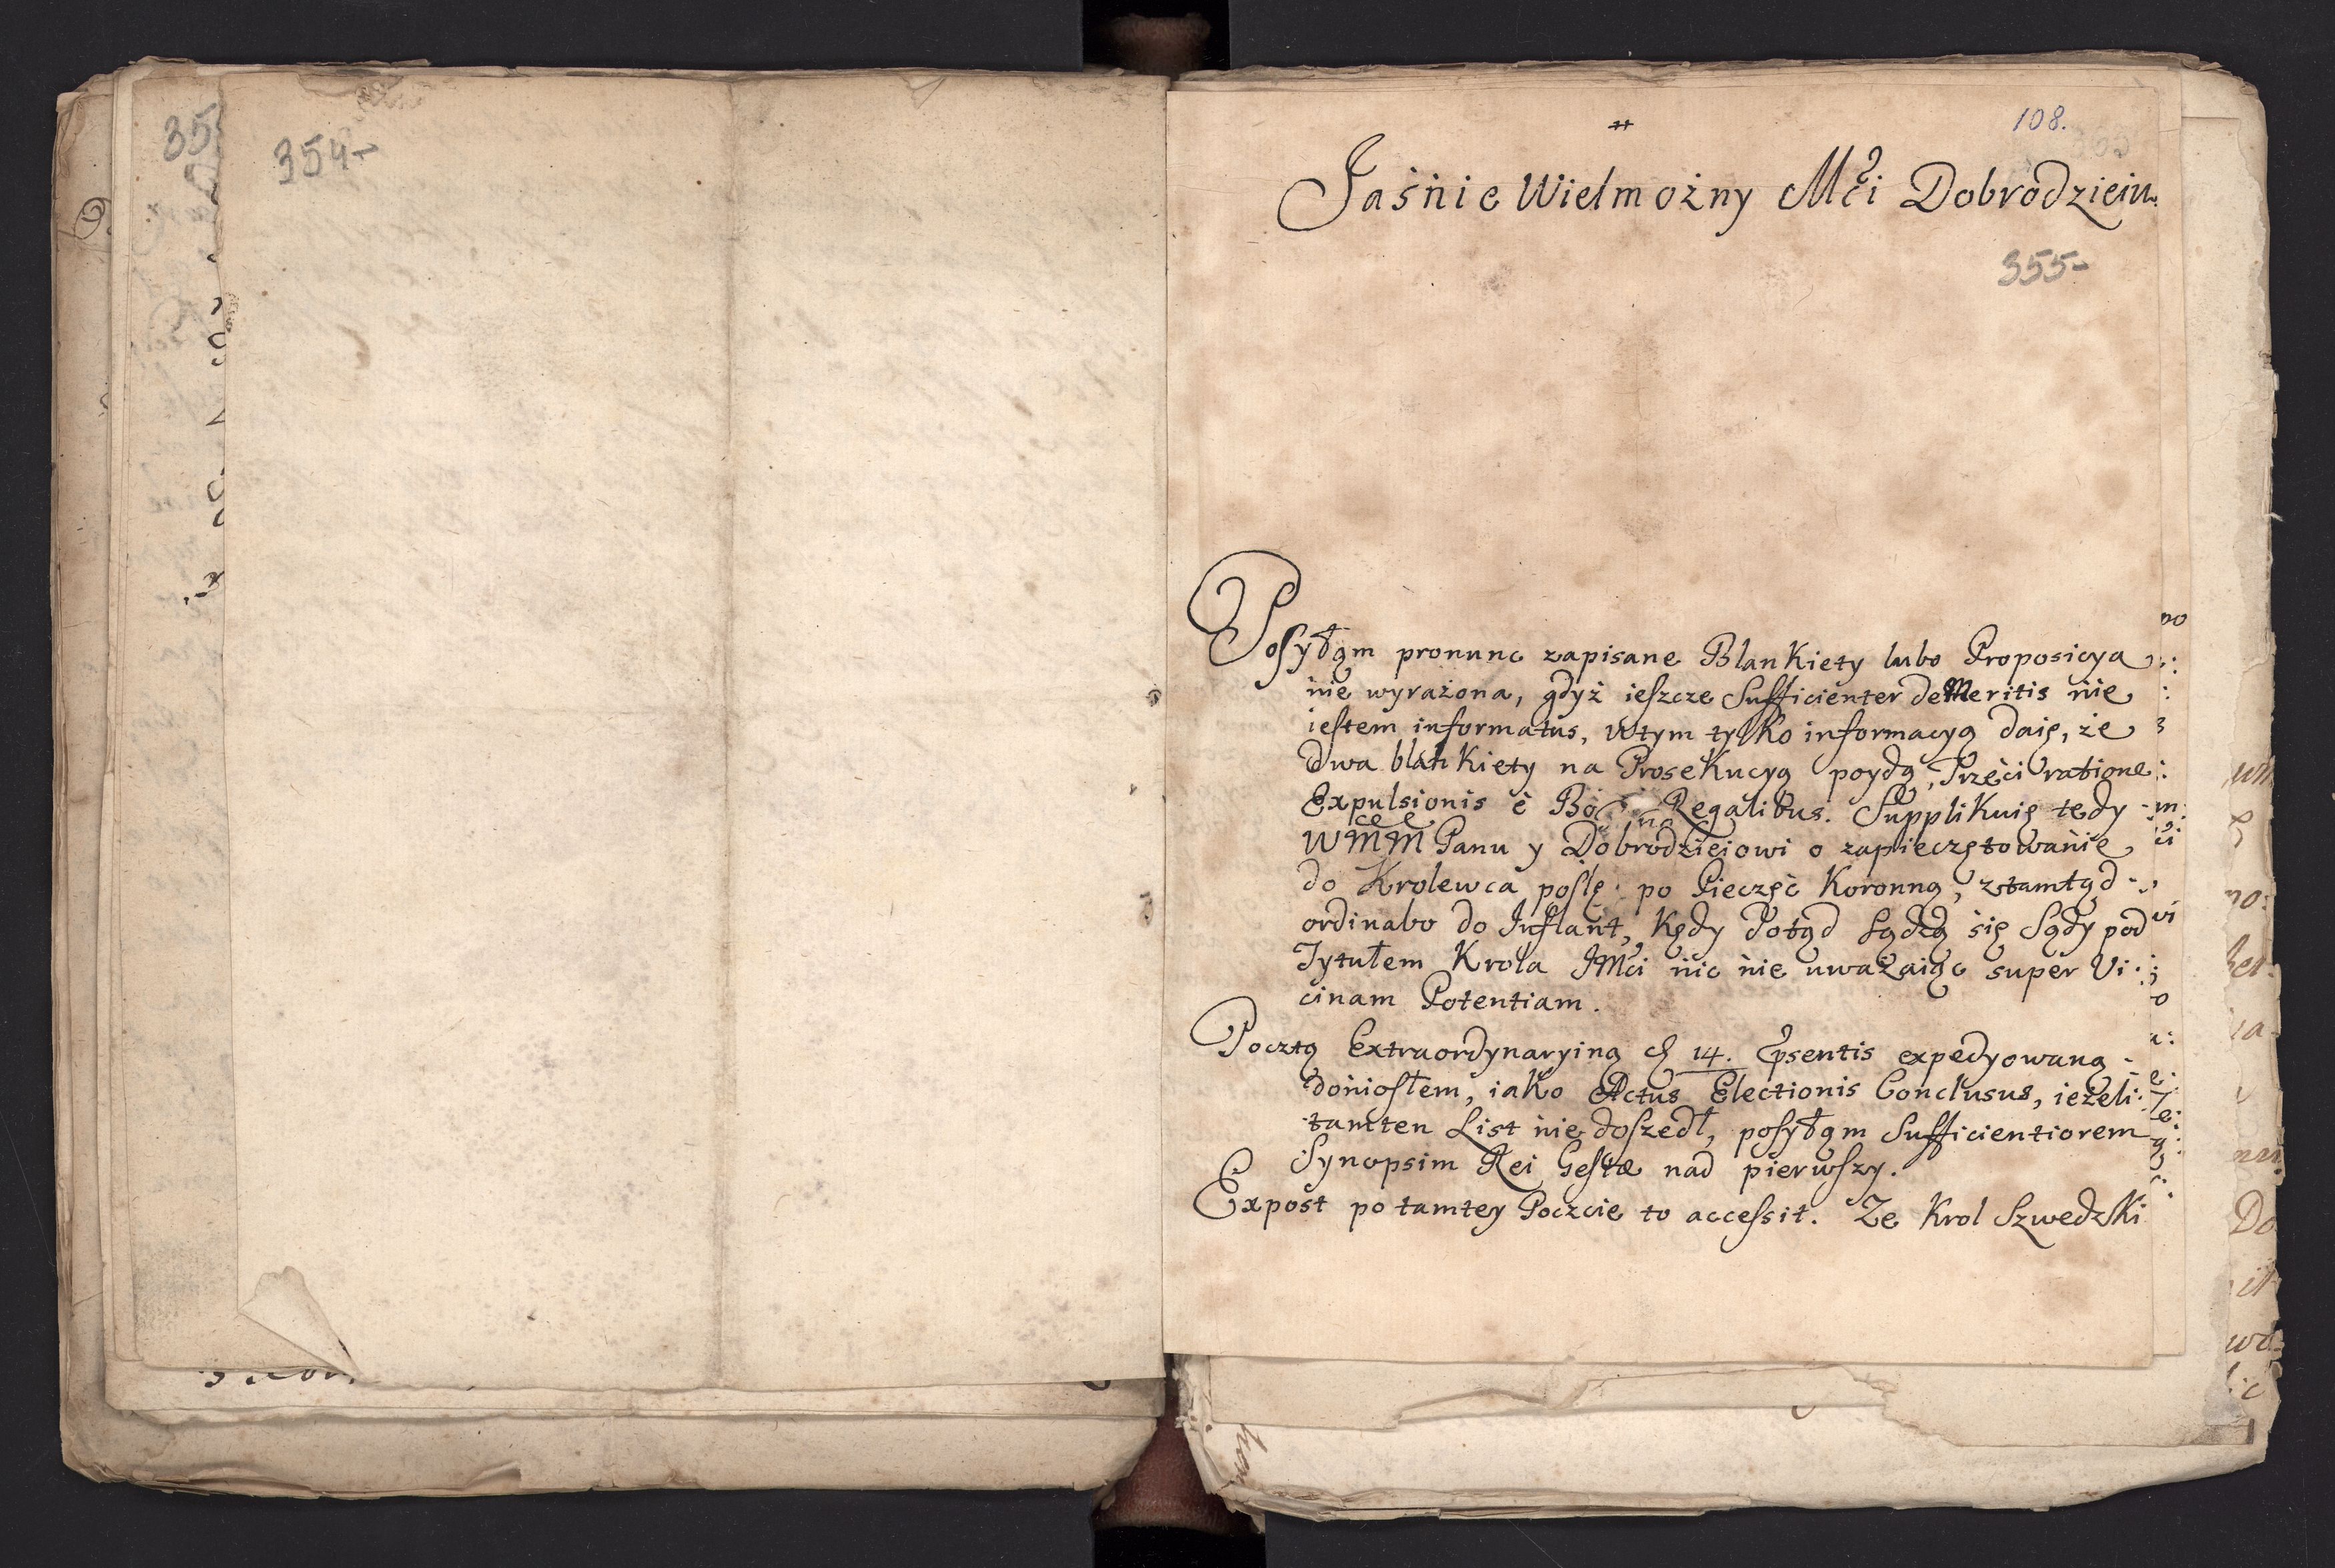 354-
108.
Jaśnie Wielmożny Mći Dobrodzieiu
355-
Posyłąm pronunc zapisane Blankiety lubo Proposicya
nie wyrażona, gdyż ieszcze Sufficienter de Meritis nie
iestem informatus, w tym tylko informacyą daię, że
dwa blankiety na Prosekucyą poydą, Trzeci ratione
Expulsionis è Bo Regalibus. Supplikuię tedy
WMM Panu y Dobrodzieiowi o zapieczętowanie,
do Krolewca poslę po Pieczęć Koronną, ztamtąd
ordinabo do Inflant, kędy dotąd sądzą się Sądy pod
Tytułem Krola JMći nic nie uważaiąc super Vi:
cinam Potentiam.
Pocztą Extraordynaryiną 14. Psentis expedyowaną
doniosłem, iako Actus Electionis Conclusus, ieżeli
tamten List nie doszedł, posyłąm Sufficientiorem
Synopsim Rei Gestæ nad pierwszy.
Expost po tamtey Poczcie to accessit. Że Krol Szwedzki